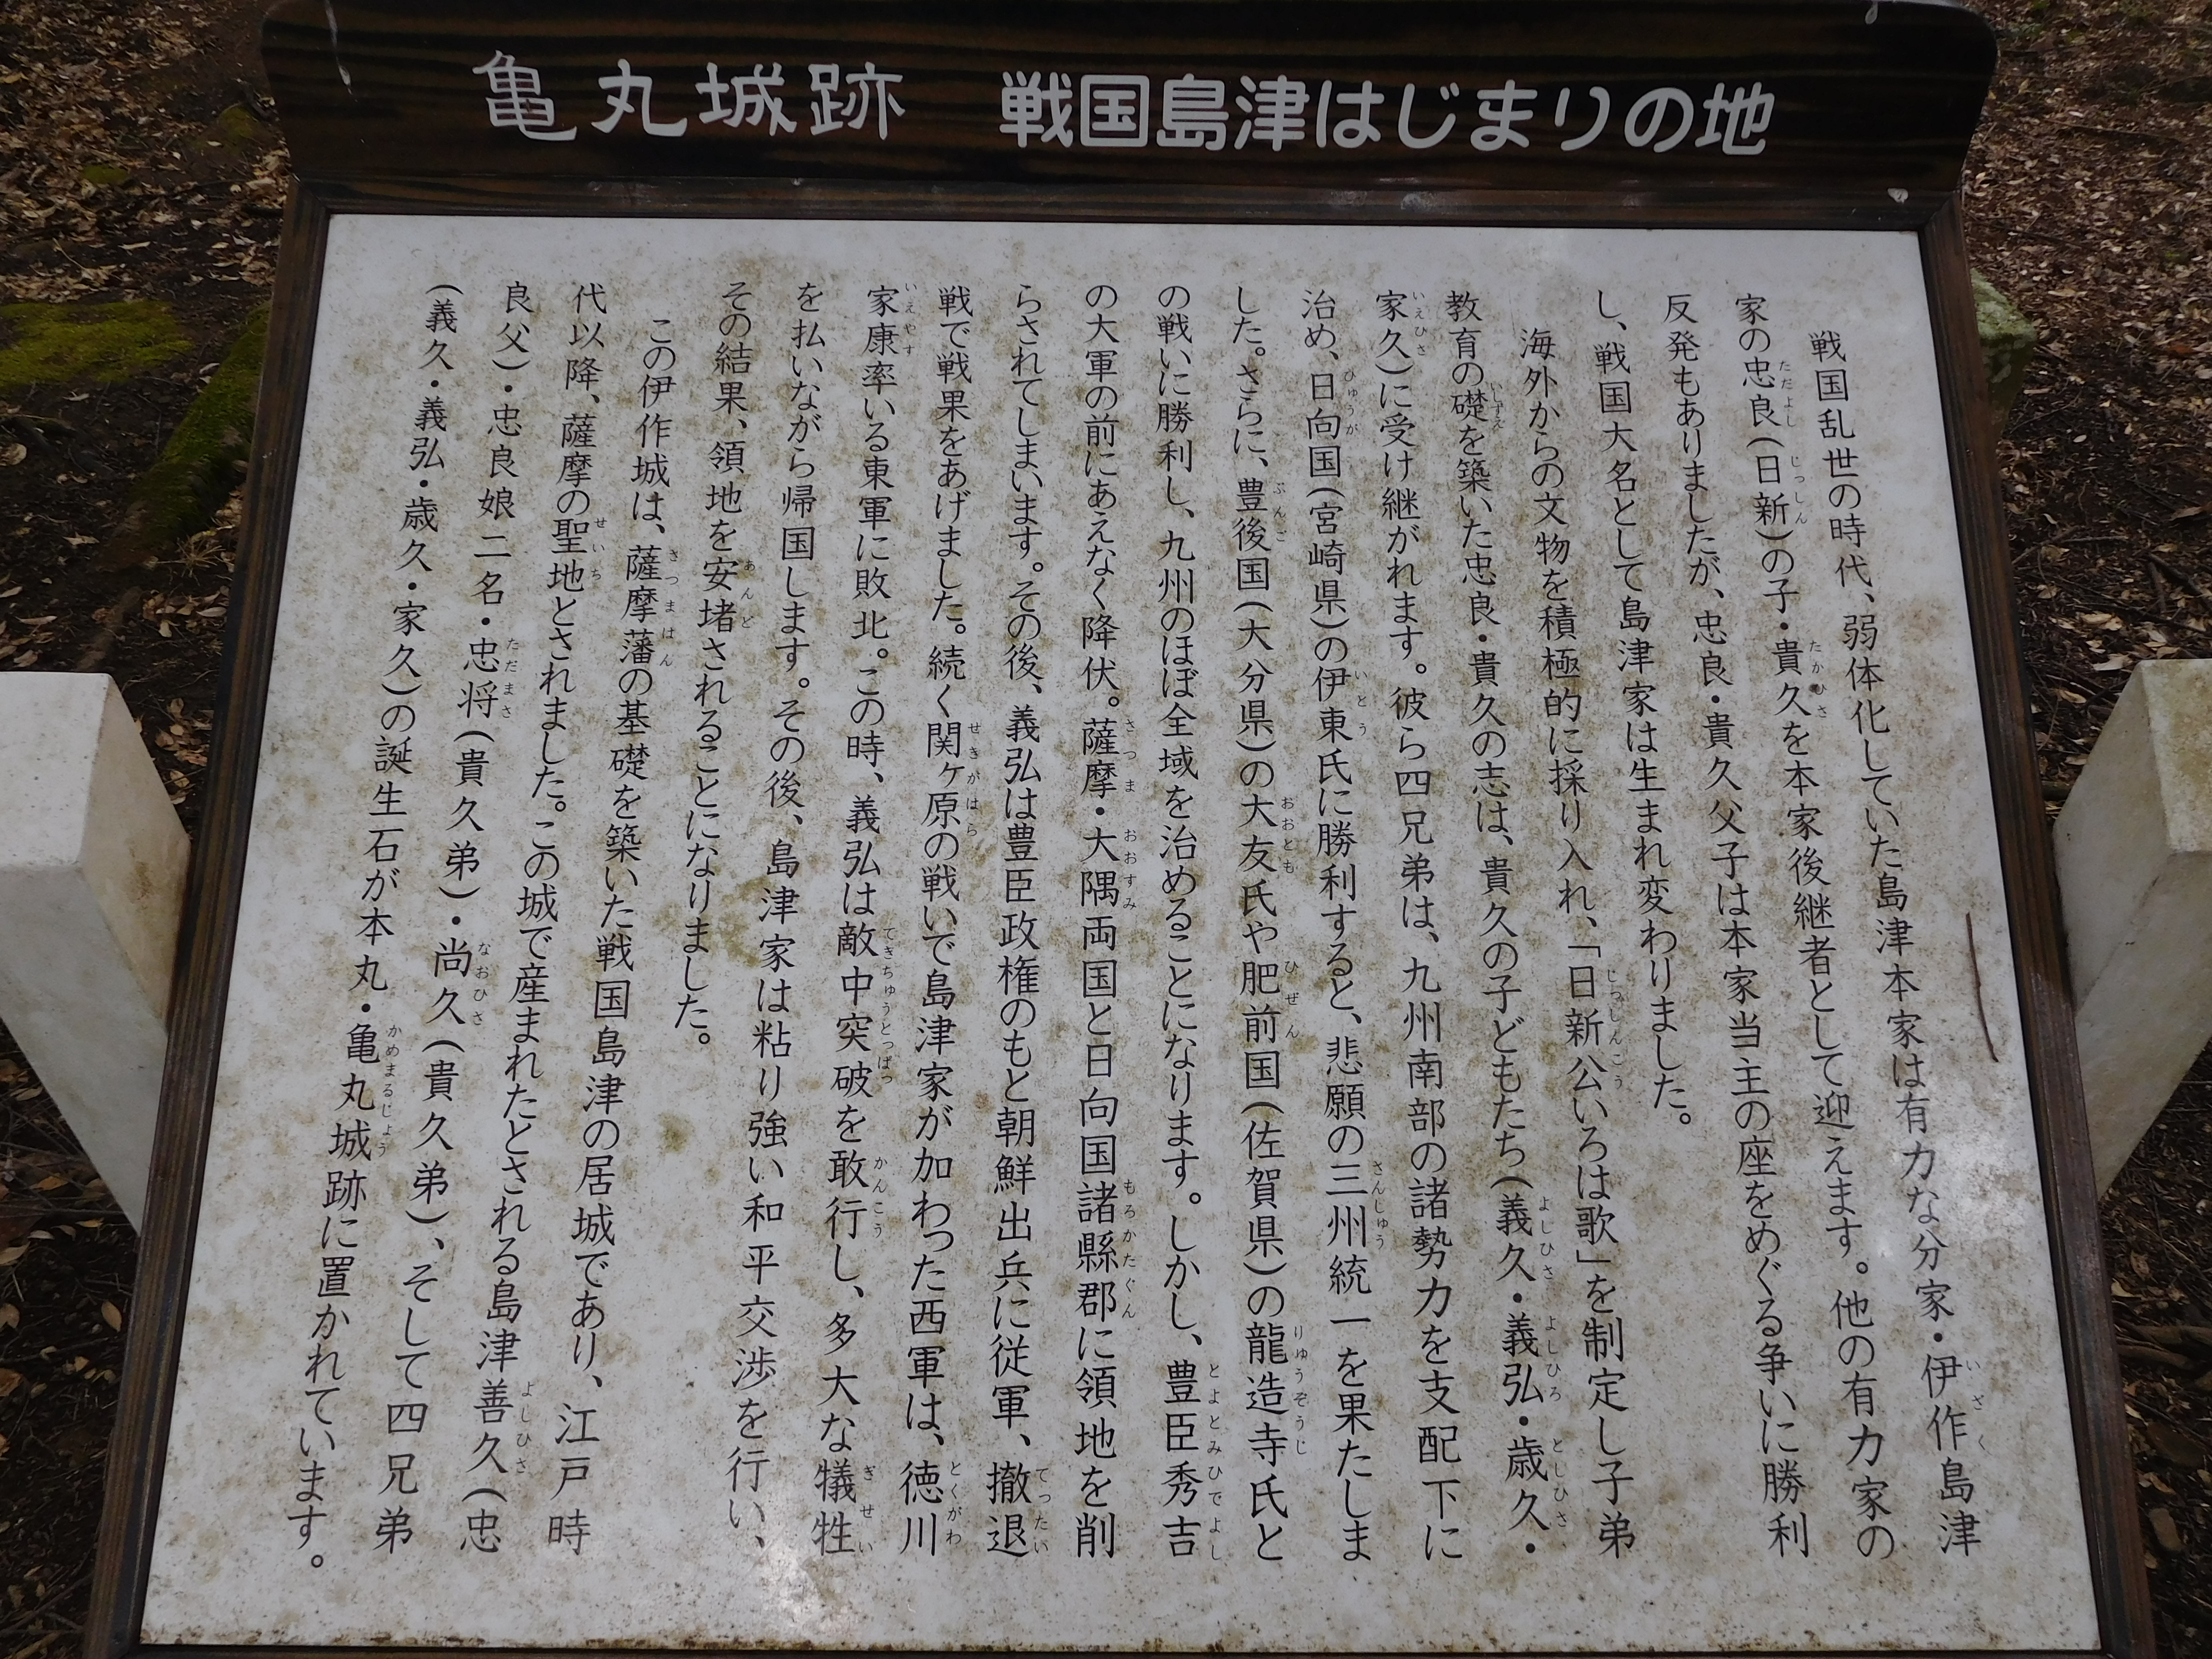 亀丸城跡 戦国島津はじまりの地
戦国乱世の時代、弱体化していた島津本家は有力な分家・伊作島津
家の忠良(日新)の子・貴久を本家後継者として迎えます。他の有力家の
反発もありましたが、忠良・貴久父子は本家当主の座をめぐる争いに勝利
し、戦国大名として島津家は生まれ変わりました。
海外からの文物を積極的に採り入れ、「日新公いろは歌」を制定し子弟
教育の礎を築いた忠良・貴久の志は、貴久の子どもたち(義久・義弘・歳久・
家久)に受け継がれます。彼ら四兄弟は、九州南部の諸勢力を支配下に
治め、日向国(宮崎県)の伊東氏に勝利すると、悲願の三州統一を果たしま
した。さらに、豊後国(大分県)の大友氏や肥前国(佐賀県)の龍造寺氏と
の戦いに勝利し、九州のほぼ全域を治めることになります。しかし、豊臣秀吉
の大軍の前にあえなく降伏。薩摩・大隅両国と日向国諸縣郡に領地を削
らされてしまいます。その後、義弘は豊臣政権のもと朝鮮出兵に従軍、撤退
戦で戦果をあげました。続く関ヶ原の戦いで島津家が加わった西軍は、徳川
家康率いる東軍に敗北。この時、義弘は敵中突破を敢行し、多大な犠牲
を払いながら帰国します。その後、島津家は粘り強い和平交渉を行い、
その結果、領地を安堵されることになりました。
この伊作城は、薩摩藩の基礎を築いた戦国島津の居城であり、江戸時
代以降、薩摩の聖地とされました。この城で産まれたとされる島津善久(忠
良父)・忠良娘二名・忠将(貴久弟)・尚久(貴久弟)、そして四兄弟
(義久・義弘・歳久・家久)の誕生石が本丸・亀丸城跡に置かれています。